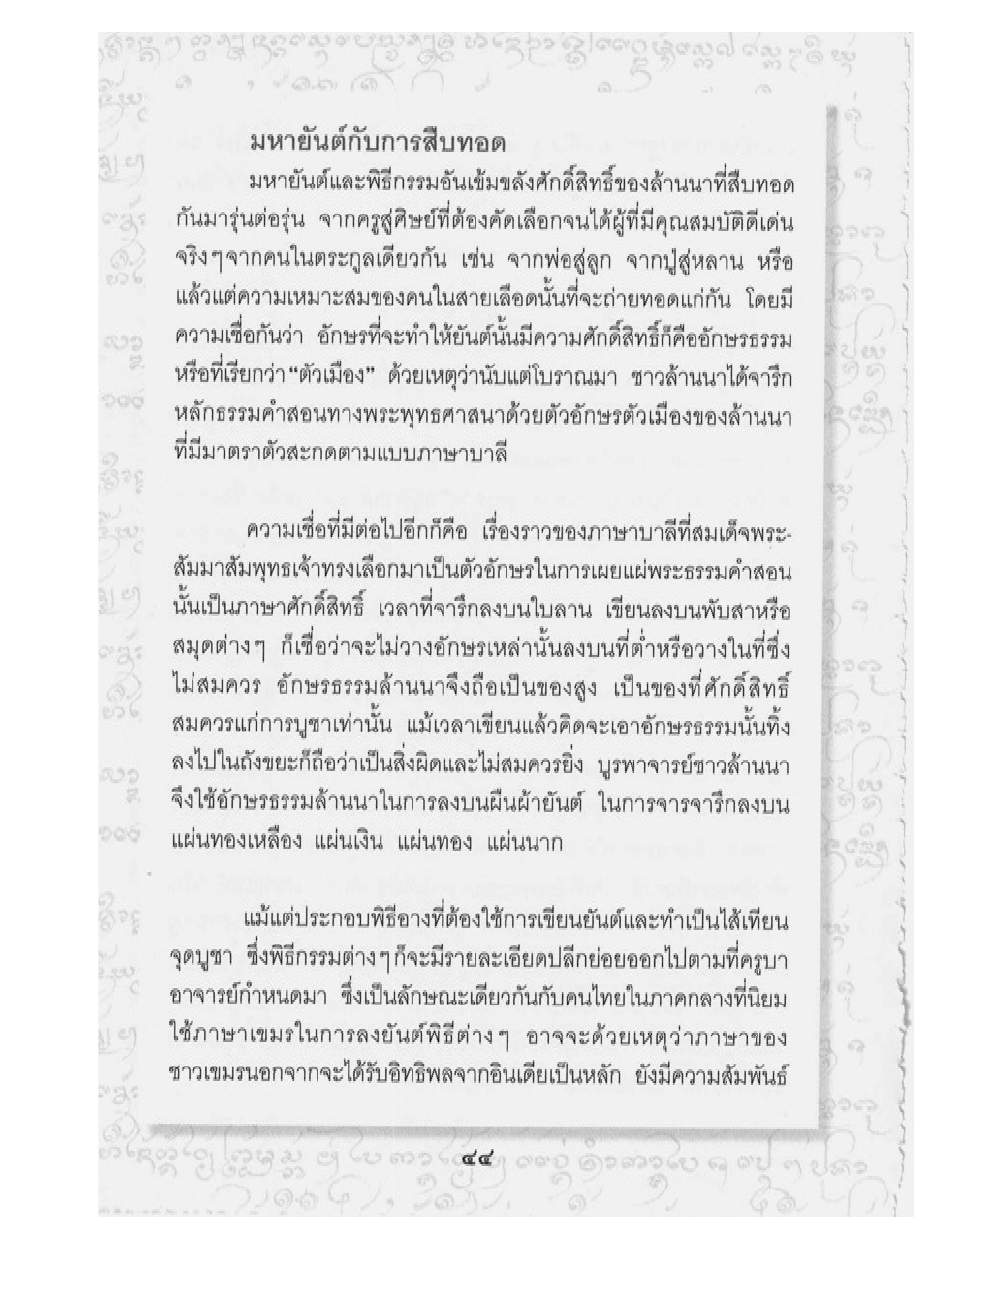 มหายันต์กับการสืบทอด
มหายันต์และพิธีกรรมอันเข้มขลังศักดิ์สิทธิ์ของล้านนาที่สืบทอด
กันมารุ่นต่อรุ่น จากครูสู่ศิษย์ที่ต้องคัดเลือกจนได้ผู้ที่มีคุณสมบัติดีเด่น
จริงๆจากคนในตระกูลเดียวกัน เช่น จากพ่อสู่ลูก จากปู่สู่หลาน หรือ
แล้วแต่ความเหมาะสมของคนในสายเลือดนั้นที่จะถ่ายทอดแก่กัน โดยมี
ความเชื่อกันว่า อักษรที่จะทำให้ยันต์นั้นมีความศักดิ์สิทธิ์ก็คืออักษรธรรม
หรือที่เรียกว่า “ตัวเมือง” ด้วยเหตุว่านับแต่โบราณมา ชาวล้านนาได้จารึก
หลักธรรมคำสอนทางพระพุทธศาสนาด้วยตัวอักษรตัวเมืองของล้านนา
ที่มีมาตราตัวสะกดตามแบบภาษาบาลี
ความเชื่อที่มีต่อไปอีกก็คือ เรื่องราวของภาษาบาลีที่สมเด็จพระ-
สัมมาสัมพุทธเจ้าทรงเลือกมาเป็นตัวอักษรในการเผยแผ่พระธรรมคำสอน
นั้นเป็นภาษาศักดิ์สิทธิ์ เวลาที่จารึกลงบนใบลาน เขียนลงบนพับสาหรือ
สมุดต่างๆ ก็เชื่อว่าจะไม่วางอักษรเหล่านั้นลงบนที่ต่ำหรือวางในที่ซึ่ง
ไม่สมควร อักษรธรรมล้านนาจึงถือเป็นของสูง เป็นของที่ศักดิ์สิทธิ์
สมควรแก่การบูชาเท่านั้น แม้เวลาเขียนแล้วคิดจะเอาอักษรธรรมนั้นทิ้ง
ลงไปในถังขยะก็ถือว่าเป็นสิ่งผิดและไม่สมควรยิ่ง บูรพาจารย์ชาวล้านนา
จึงใช้อักษรธรรมล้านนาในการลงบนผืนผ้ายันต์ ในการจารจารึกลงบน
แผ่นทองเหลือง แผ่นเงิน แผ่นทอง แผ่นนาก
แม้แต่ประกอบพิธีอางที่ต้องใช้การเขียนยันต์และทำเป็นไส้เทียน
จุดบูชา ซึ่งพิธีกรรมต่างๆก็จะมีรายละเอียดปลีกย่อยออกไปตามที่ครูบา
อาจารย์กำหนดมา ซึ่งเป็นลักษณะเดียวกันกับคนไทยในภาคกลางที่นิยม
ใช้ภาษาเขมรในการลงยันต์พิธีต่างๆ อาจจะด้วยเหตุว่าภาษาของ
ชาวเขมรนอกจากจะได้รับอิทธิพลจากอินเดียเป็นหลัก ยังมีความสัมพันธ์
๔๔